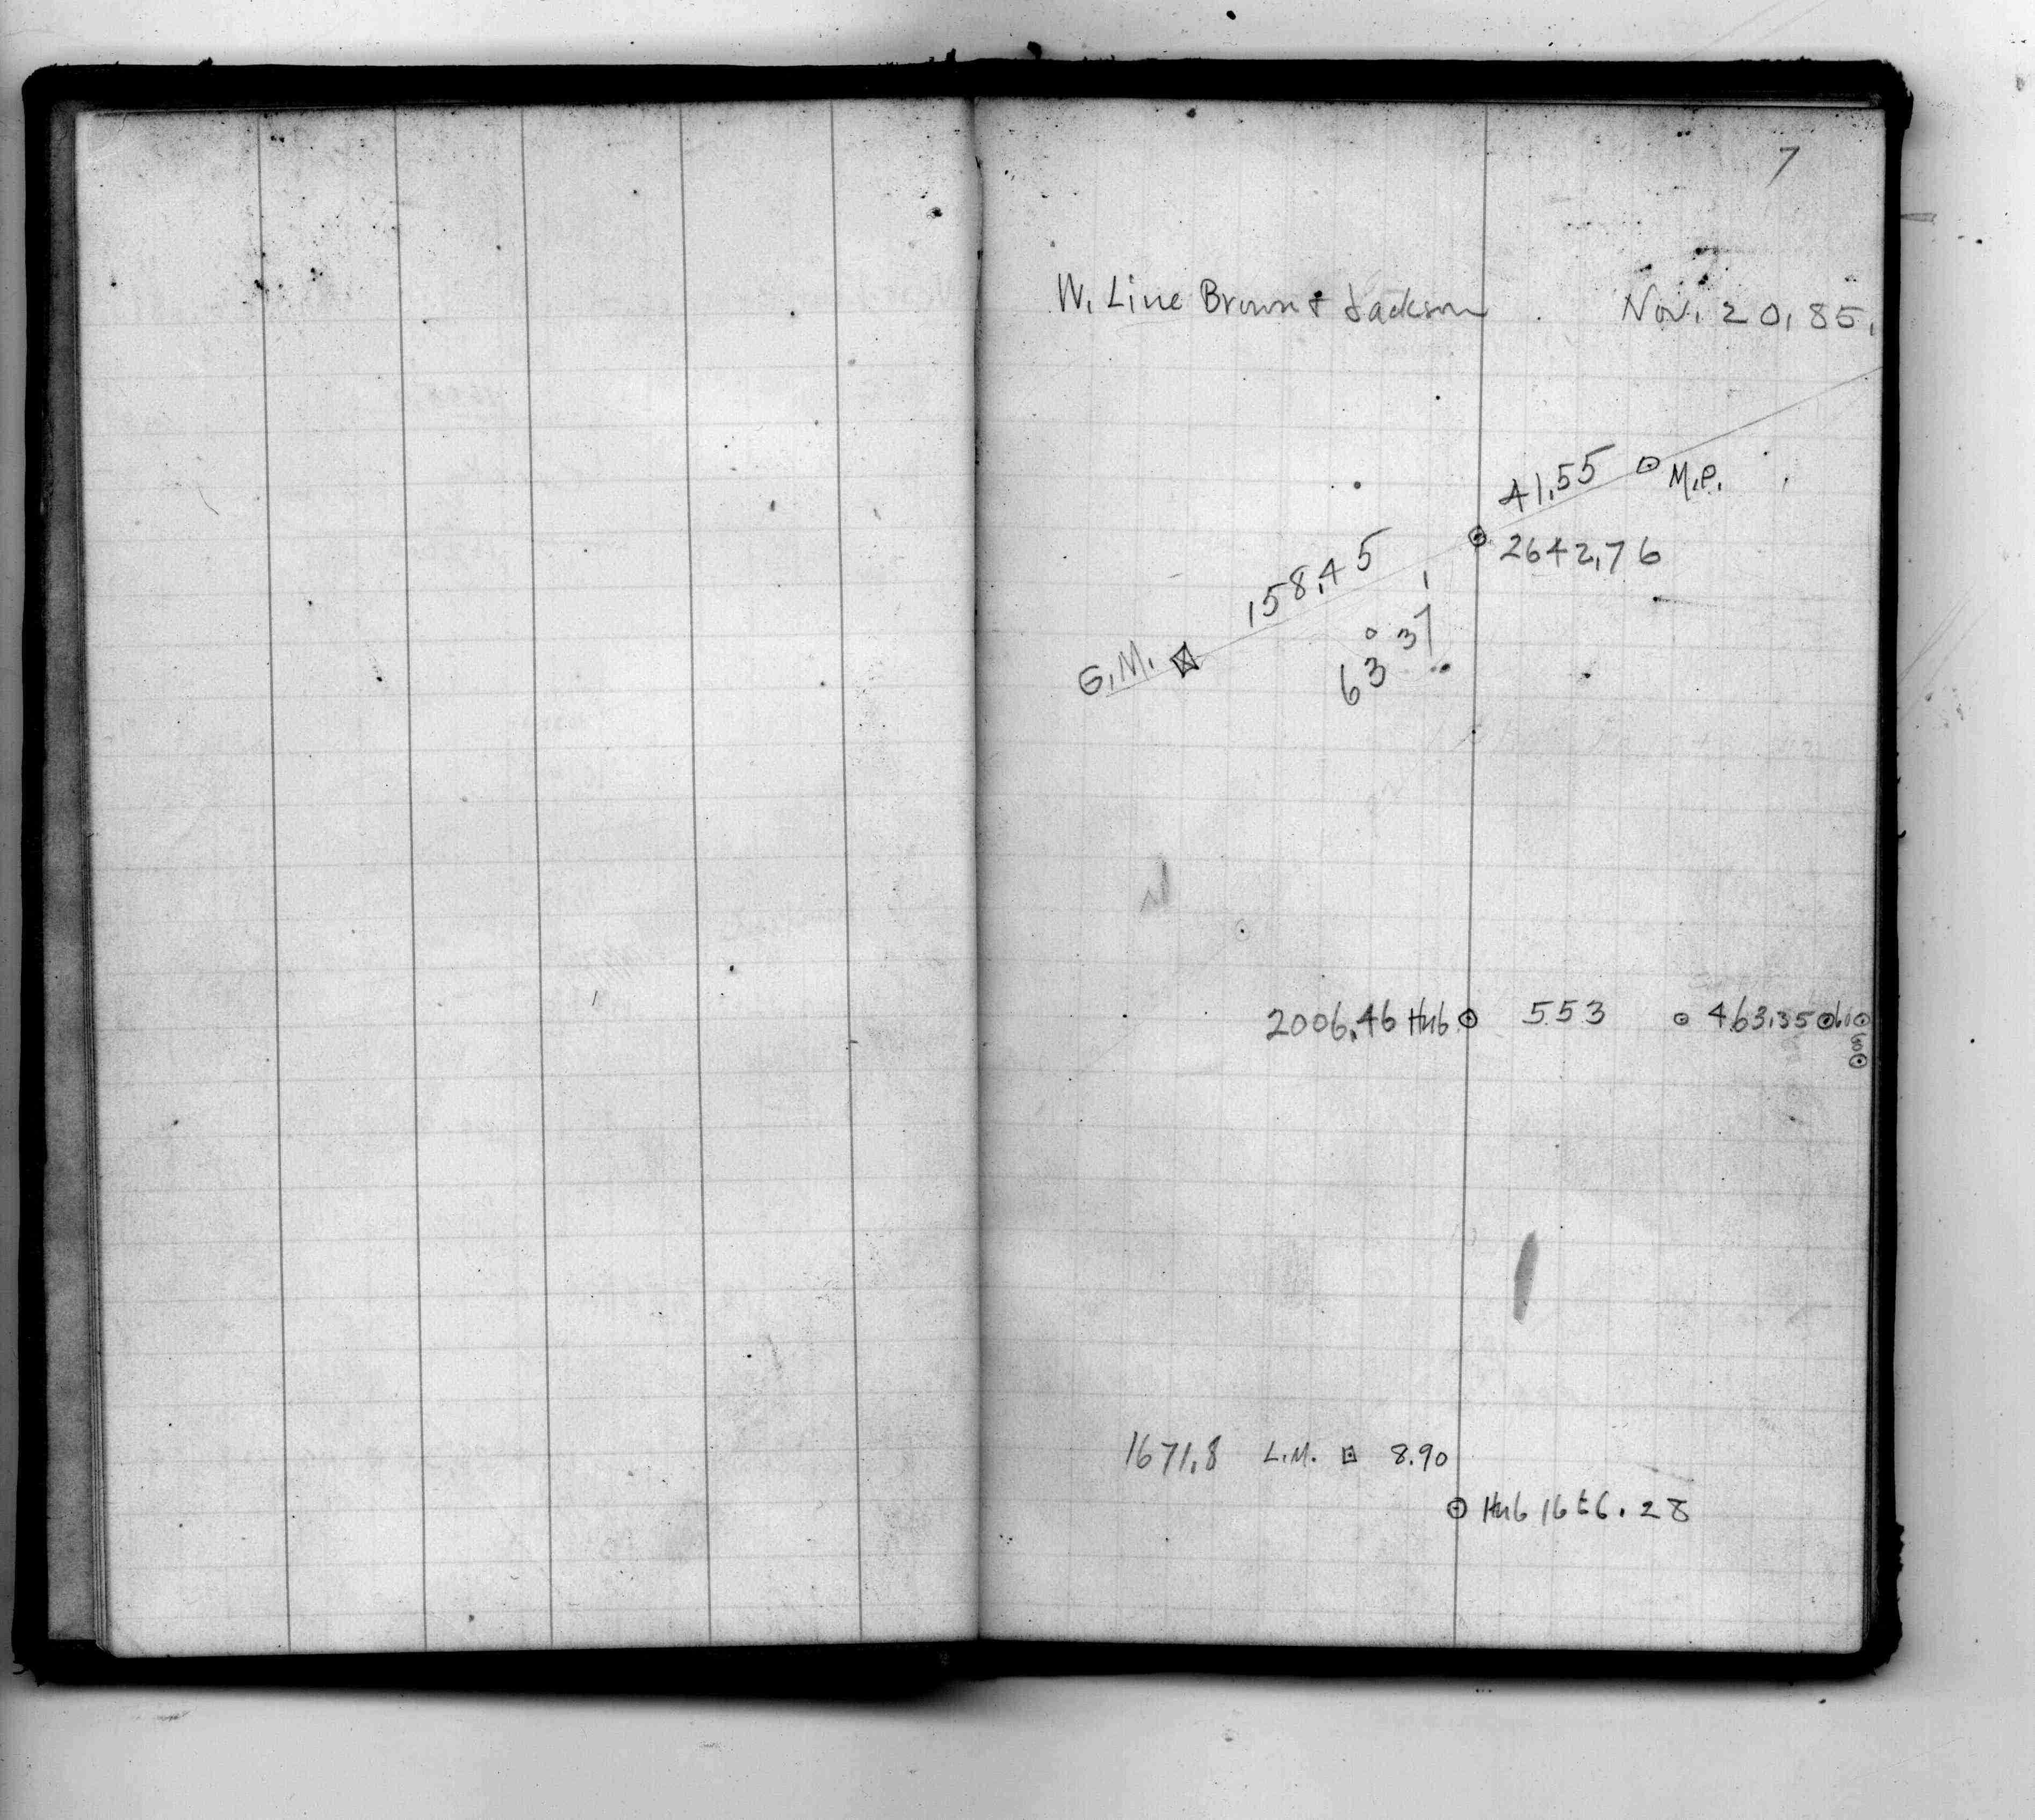 7
W. Line Brown & Jackson . Nov. 20, 85.
41.55 M.P.
2642.76
158.45
63° 37'
G.M.
2006.46 Hub 553 463.35
1671.8 L.M. 8.90
Hub